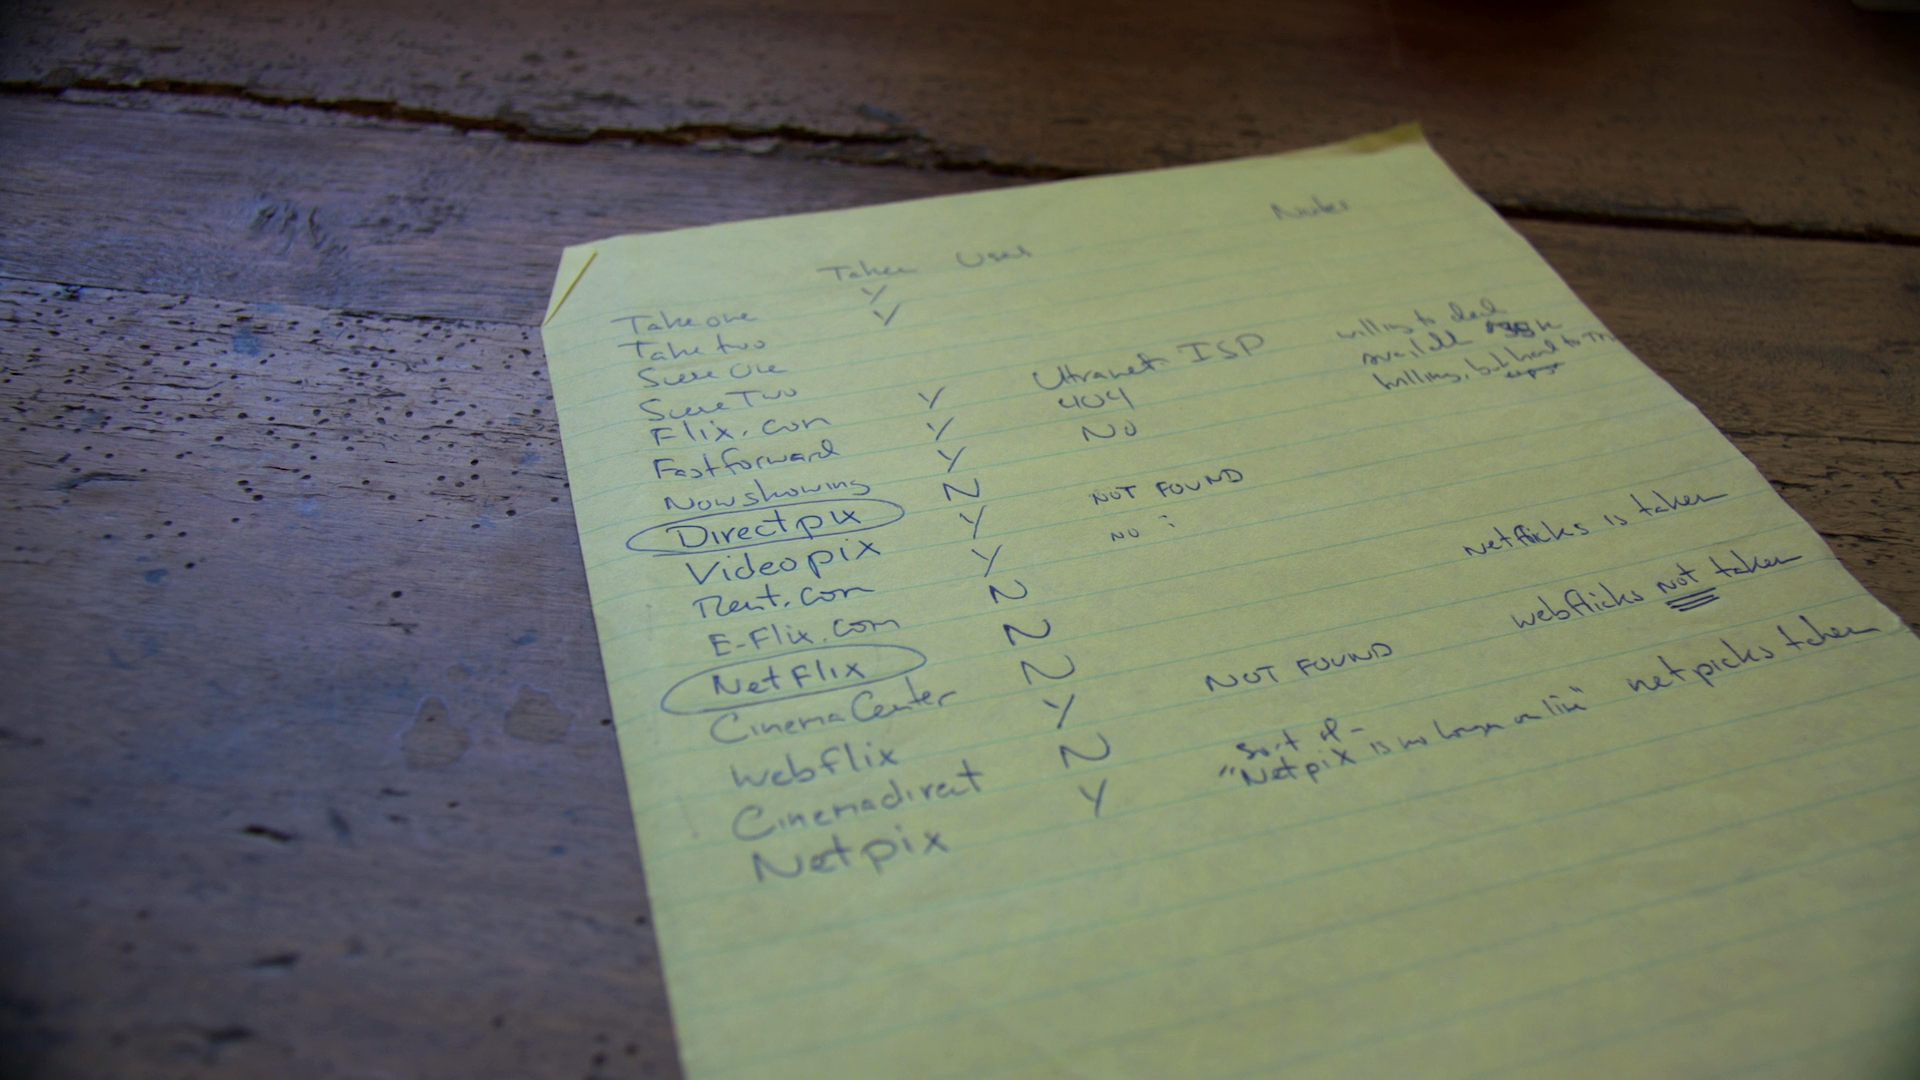 Taken Used Notes
Take one Y
Take two Y
Scene One
Scene Two
Flix.com Y Ultranet ISP willing to deal
Fastforward Y 404 available
Nowshowing Y No willing, but hard to
Directpix N
Videopix Y NOT FOUND
Rent.com Y NO
E-Flix.com N
NetFlix N netflicks is taken
CinemaCenter N
Webflix Y NOT FOUND webflicks not taken
Cinemadirect N
Netpix Y sort of - "Netpix is no longer on line" netpicks taken